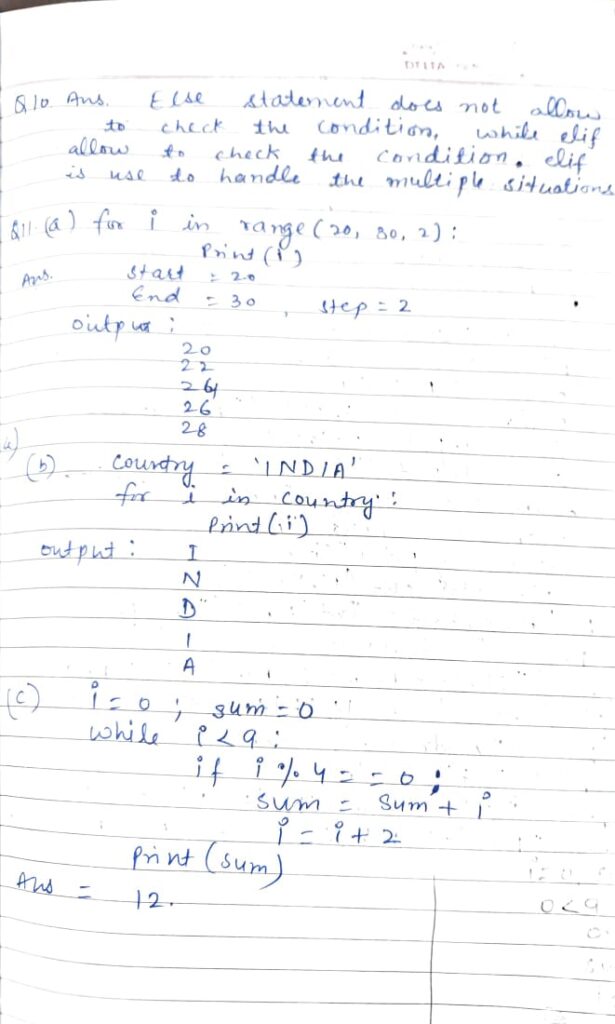 DELTA
Q10 Ans. Else statement does not allow
to check the condition, while elif
allow to check the condition. elif
is use to handle the multiple situations
Q11 (a) for i in range (20, 30, 2) :
Print (i)
Ans. Start : 20
End = 30 , step = 2
output :
20
22
24
26
28
a)
(b) Country = 'INDIA'
for i in country :
Print (i)
output : I
N
D
I
A
(c) i = 0 ; sum = 0
while i < 9 :
if i % 4 = = 0 :
sum = sum + i
i = i + 2
print (sum)
Ans = 12.
0 < 9